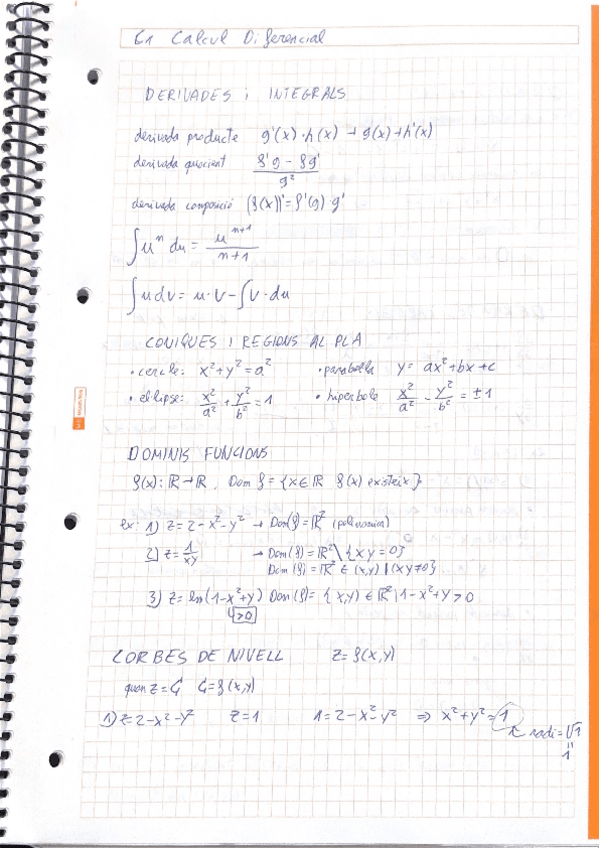 C1 Calcul Diferencial
DERIVADES i INTEGRALS
derivada producte g'(x)·h(x) + g(x)+h'(x)
derivada quocient f'g - fg' / g²
derivada composició (f(x))' = f'(g)·g'
∫uⁿ du = uⁿ⁺¹ / n+1
∫u dv = u·v - ∫v·du
CONIQUES i REGIONS AL PLA
• cercle: x²+y²=a² • parabolla y = ax²+bx+c
• el·lipse: x²/a² + y²/b² = 1 • hiperbola x²/a² - y²/b² = ±1
DOMINIS FUNCIONS
f(x): ℝ→ℝ, Dom f = {x∈ℝ f(x) existeix}
ex: 1) z=2-x²-y² → Dom(f)=ℝ² (polinomica)
2) z=1/xy → Dom(f)=ℝ²\{xy=0}
Dom(f)=ℝ² ∈ (x,y) | (xy≠0}
3) z=ln(1-x²+y) Dom(f)={x,y) ∈ ℝ² | 1-x²+y>0
↳ >0
CORBES DE NIVELL z=f(x,y)
quan z=C C=f(x,y)
1) z=2-x²-y² z=1 1=2-x²-y² ⇒ x²+y²=1
radi=√1
=
1